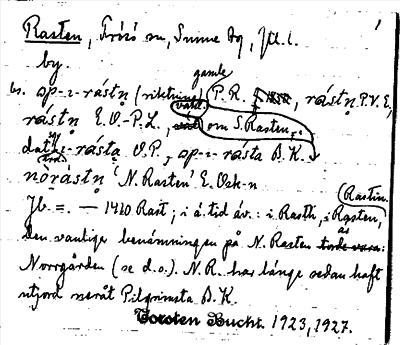 Rasten, Frösö sn, Sunne tg, Jtl. l.
by.
gamle
bs. op-ɩ-rástn̥ (riktning) P.R. rástn̥ P.V.E,
rástn̥ E.O.-P.L., om S. Rasten,
rásta O.P., op-ɩ-rásta B.K.
nórastn̥ 'N. Rasten' E. Osk-n
(Rastin.
Jb. =. — 1410 Rast, i ä. tid äv.: i Rasth, i Rasten,
den vanlige benämningen på N. Rasten
Norrgården (se d.o.). N.R. har länge sedan haft
utjord neråt Pilgrimsta B.K.
Torsten Bucht. 1923, 1927.